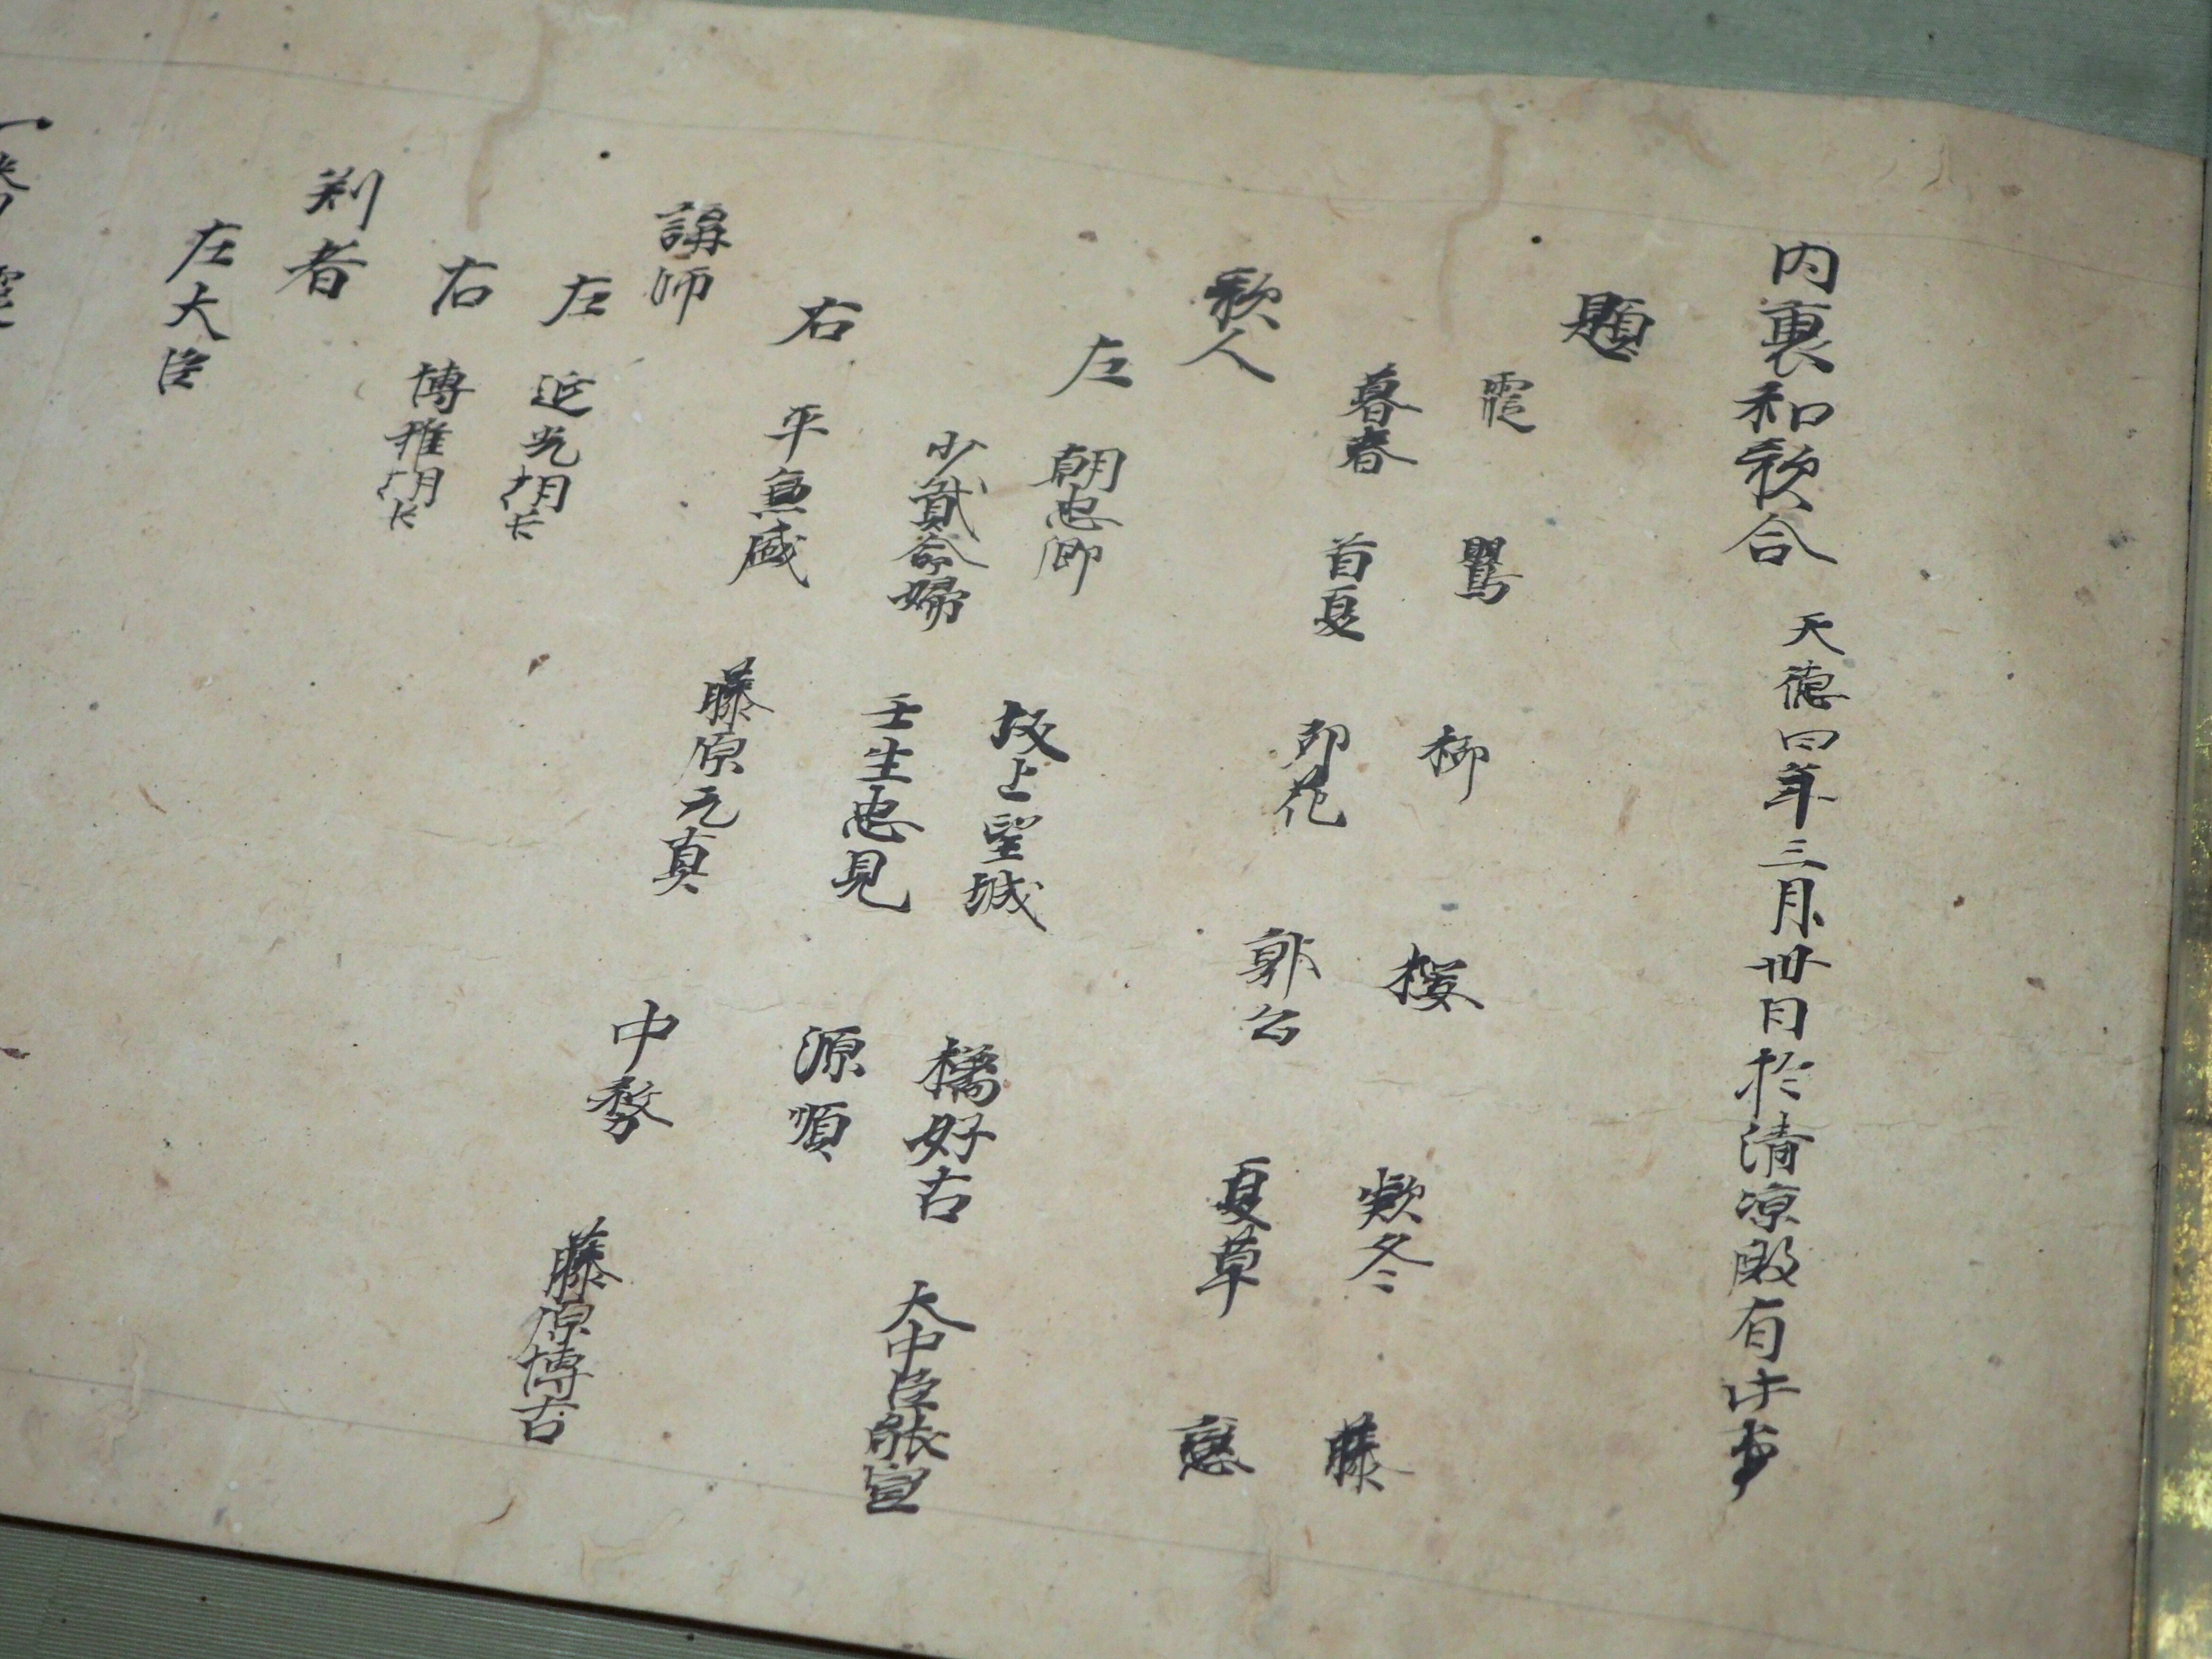 内裏和歌合 天徳四年三月卅日於清凉殿有此事
題
霞 鸎 柳 桜 欵冬 藤
暮春 首夏 卯花 郭公 夏草 恋
歌人
左 朝忠卿 坂上望城 橘好古 大中臣能宣
少貳命婦 壬生忠見 源順
右 平兼盛 藤原元真 中務 藤原博古
講師
左 延光朝臣
右 博雅朝臣
判者
左大臣
一番 霞